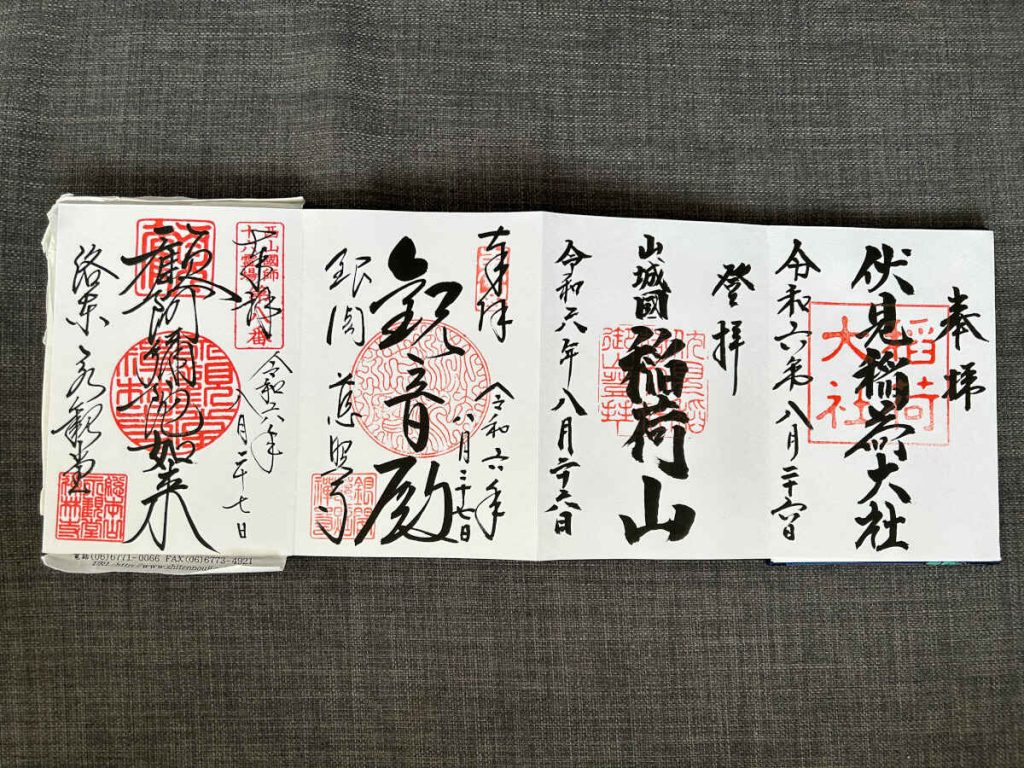 奉拝
伏見稲荷大社
稲荷
大社
令和六年八月二十六日
登拝
山城國
稲荷山
令和六年八月二十六日
奉拝
令和六年
八月二十七日
観音殿
銀閣 慈照寺
奉拝
令和六年
八月二十七日
顧阿弥陀如来
洛東 永観堂
電話(06)6771-0066 FAX(06)6773-4921